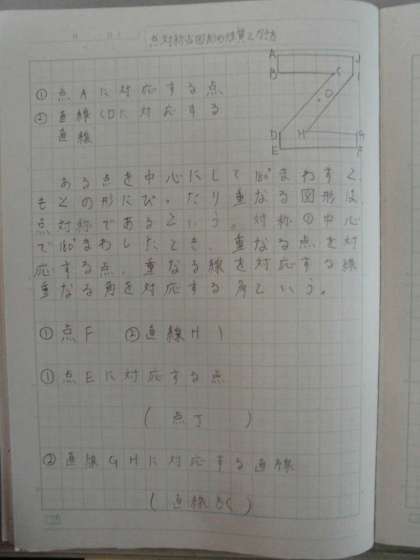 点対称な図形の性質とかき方
A J
B C I
O
D H G
E F
① 点Aに対応する点
② 直線CDに対応する
直線
ある点を中心にして180°まわすと、
もとの形にぴったり重なる図形は、
点対称であるという。対称の中心
で180°まわしたとき、重なる点を対
応する点、重なる線を対応する線
重なる角を対応する角という。
① 点F ② 直線HI
① 点Eに対応する点
( 点J )
② 直線GHに対応する直線
( 直線BC )